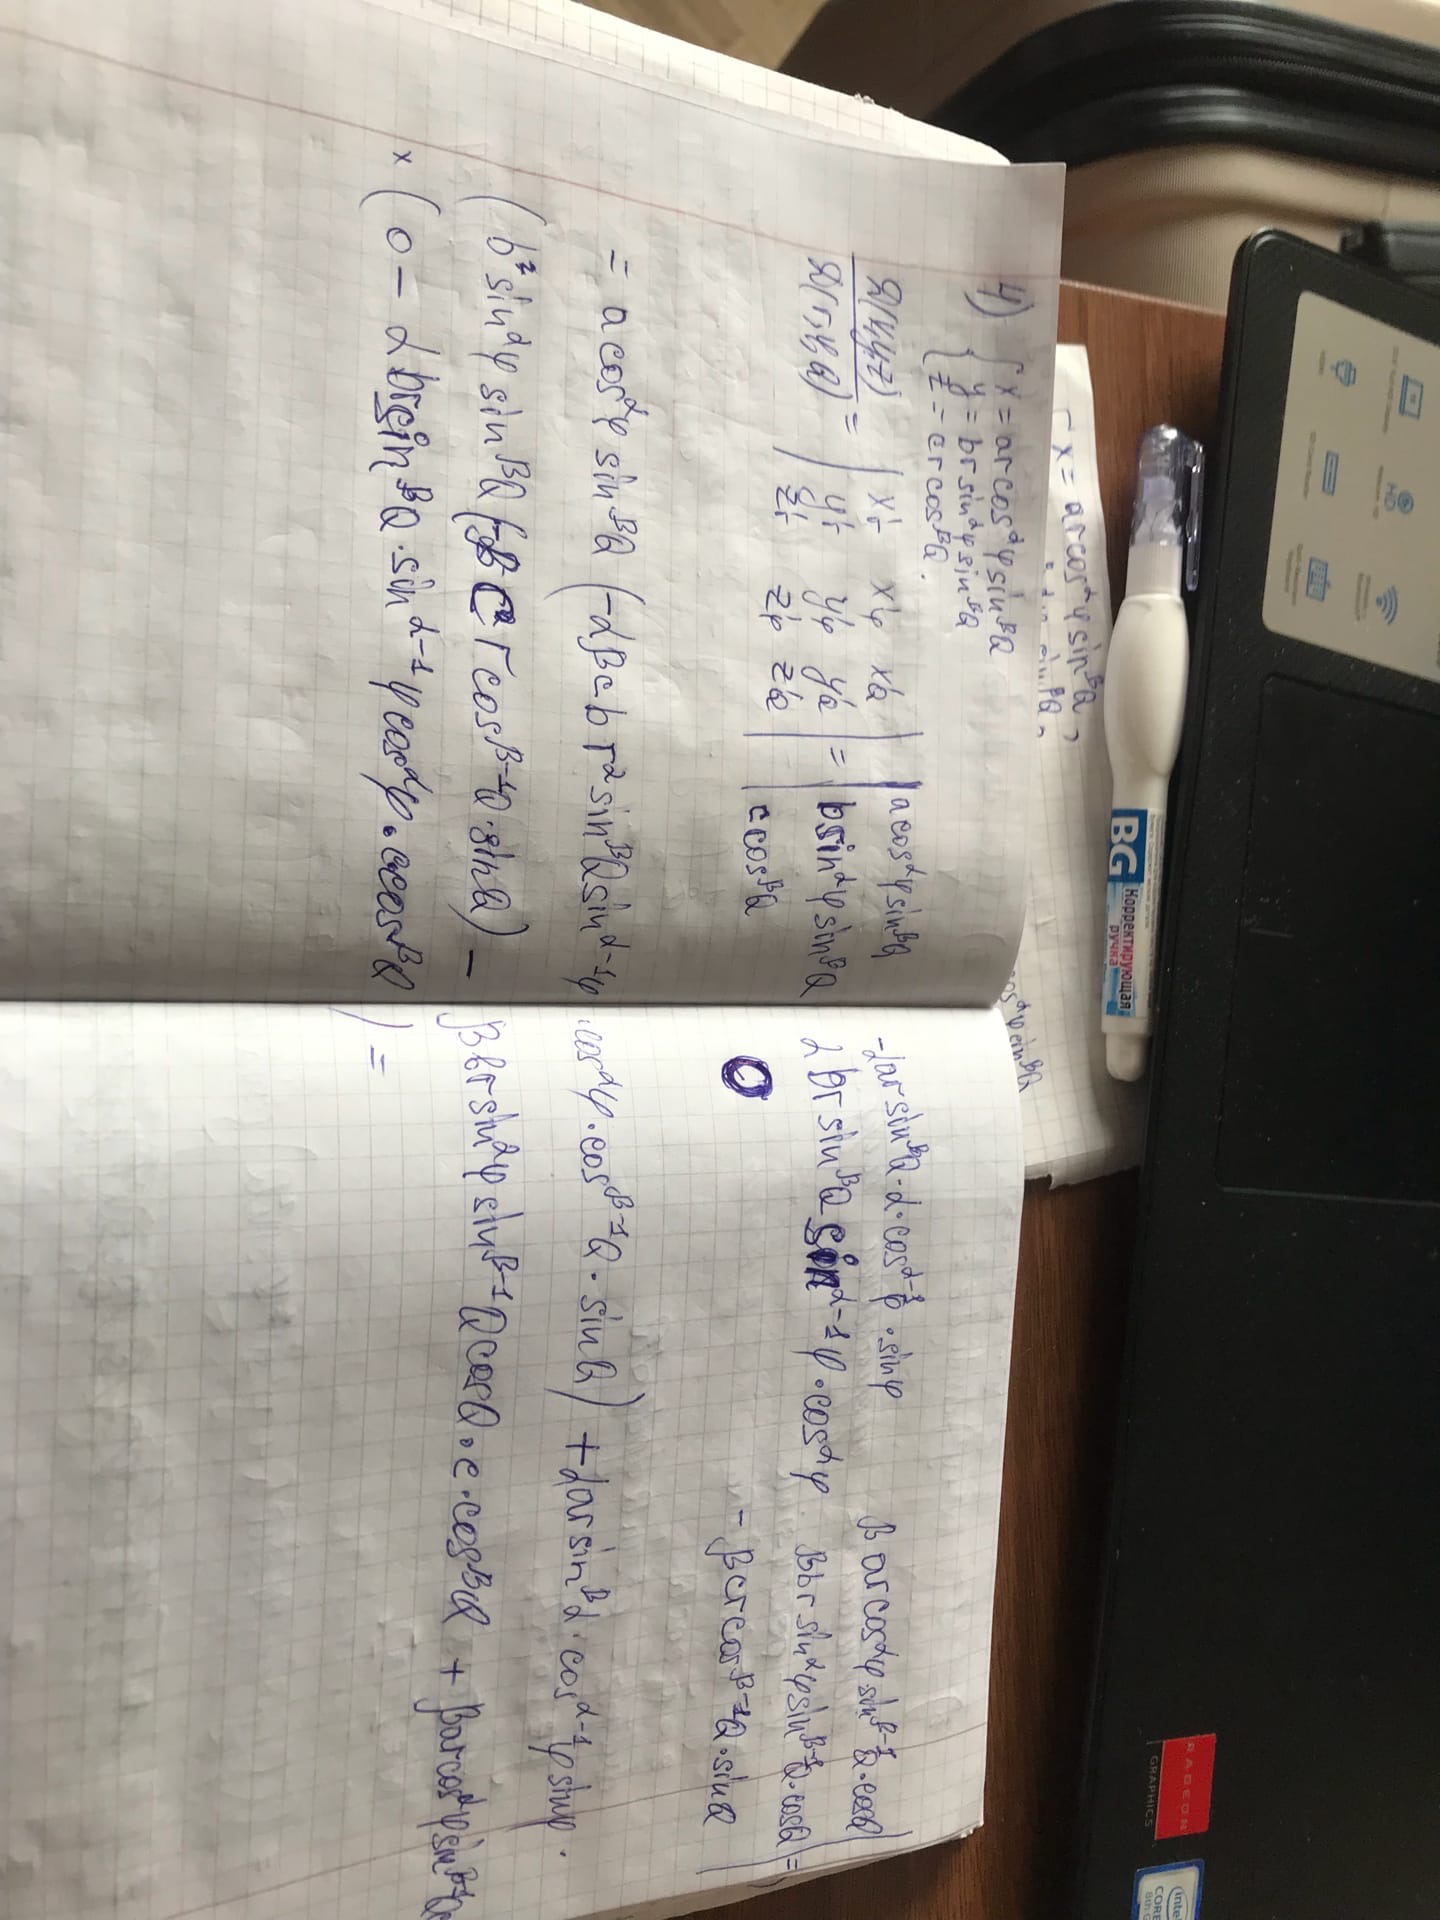 HD
HDMI
SD Card Reader
RADEON
GRAPHICS
intel
CORE
8th G
BG Корректирующая
ручка
x = arcos^α φ sin^β Q,
4) { x = arcos^α φ sin^β Q
y = br sin^α φ sin^β Q
z = cr cos^β Q.
D(x,y,z) / D(r,φ,Q) = | x'r x'φ x'Q | = | acos^α φ sin^β Q -αar sin^β Q · α · cos^α-1 φ · sin φ β arcos^α φ sin^β-1 Q · cos Q |
| y'r y'φ y'Q | b sin^α φ sin^β Q α br sin^β Q sin^α-1 φ · cos^α φ β br sin^α φ sin^β-1 Q · cos Q | =
| z'r z'φ z'Q | c cos^β Q 0 - β cr cos^β-1 Q · sin Q |
= a cos^α φ sin^β Q (-αβcb r² sin^β Q sin^α-1 φ · cos^α φ · cos^β-1 Q · sin Q) + αar sin^β α · cos^α-1 φ sin φ ·
(b² sin^α φ sin^β Q (-β c r cos^β-1 Q · sin Q) - β br sin^α φ sin^β-1 Q cos Q · c · cos^β Q + β arcos^α φ sin^β-1 Q c
x (0 - α br sin^β Q · sin^α-1 φ cos^α φ · c cos^β Q) =